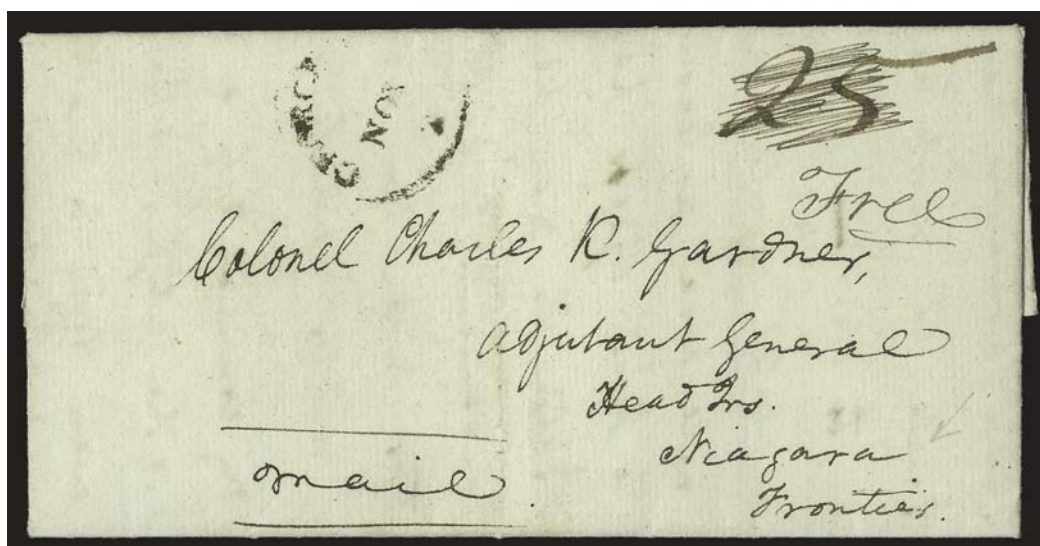 NOV
25
Free
Colonel Charles K. Gardner,
Adjutant General
Head Qrs.
Niagara
Frontier.
mail